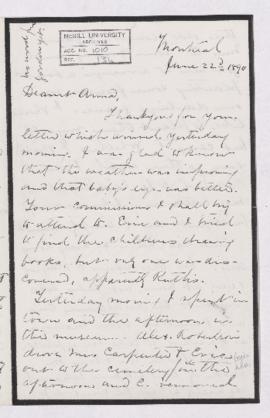 McGILL UNIVERSITY
ARCHIVES
ACC. NO. 1010
REF.
Montreal
June 22d 1890
Dearest Anna,
Thank you for your
letter which arrived yesterday
morning. I am glad to know
that the weather was improving
and that baby's eyes was better.
Your commissions I shall try
to attend to. Evie and I tried
to find the childrens drawing
books, but only one was dis-
covered, apparently Ruth's.
Yesterday morning I spent in
town and the afternoon in
the museum. Alex. Robertson
drove Mrs Carpenter & Evie
out to the cemetery in the
afternoon and E. removed